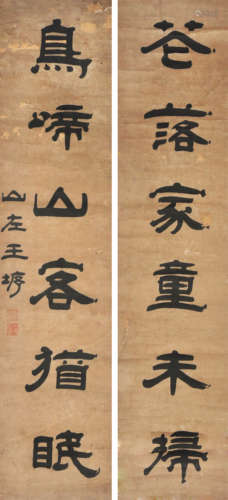 花落家童未掃
鳥啼山客猶眠
山左王塀